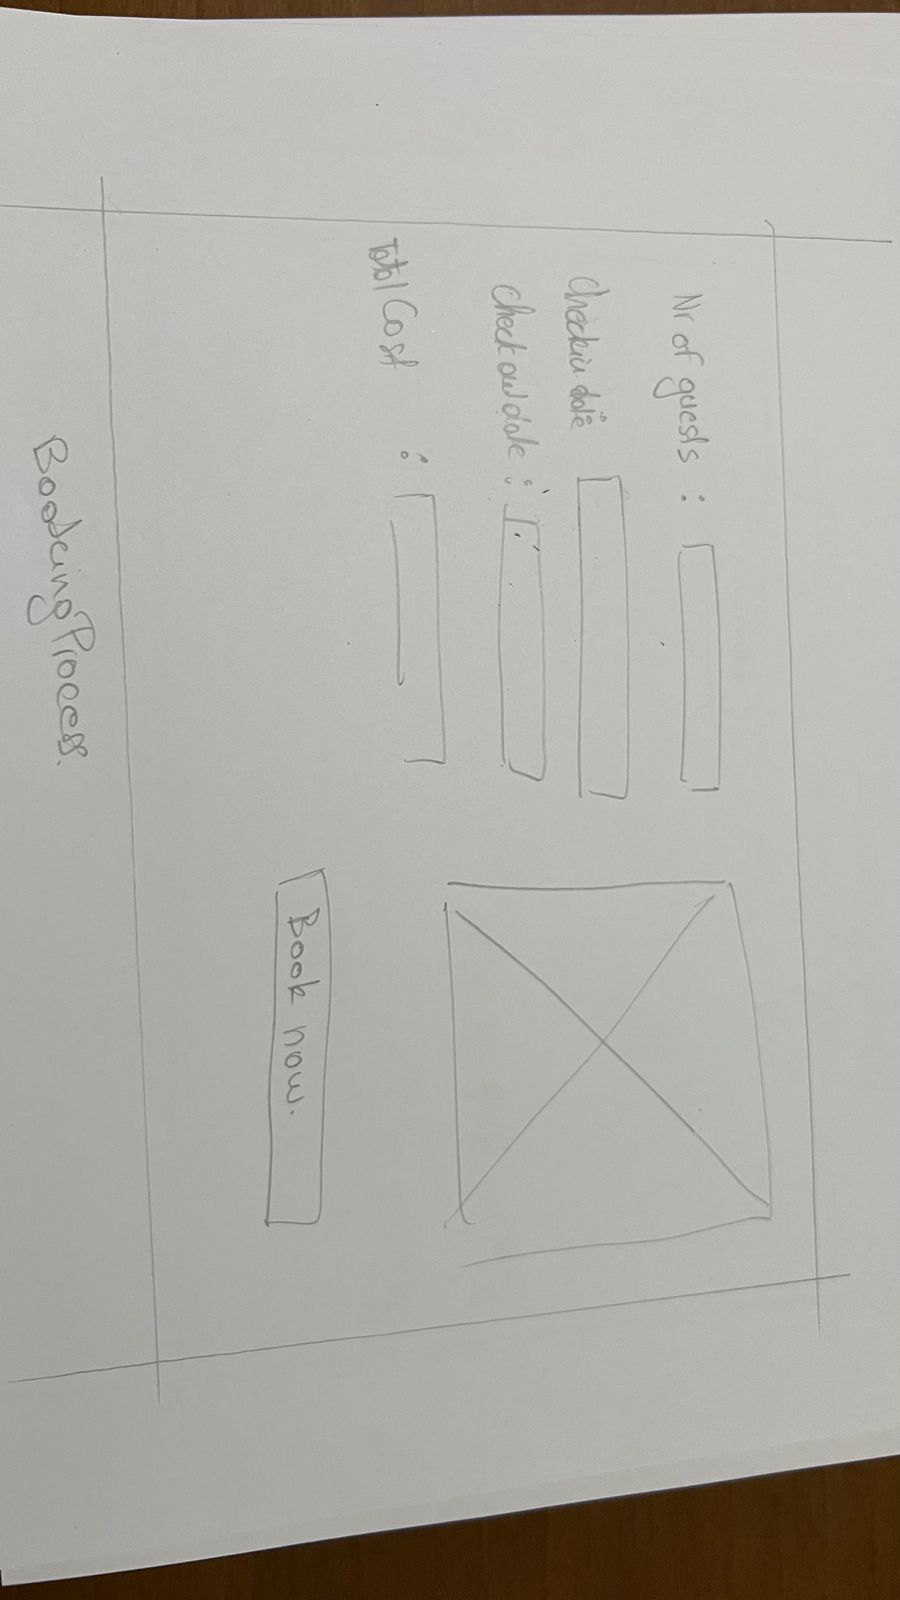 Nr of guests :
Checkin date
Check out date :
Total Cost :
Book now.
Booking Process.